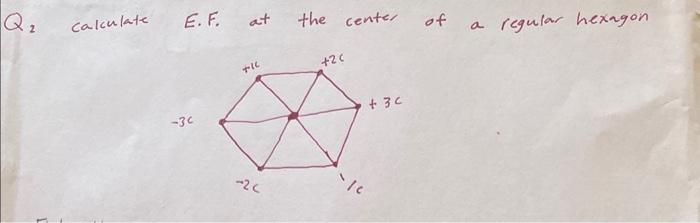 Q2 calculate E.F. at the center of a regular hexagon
+1C +2C
+3C
-3C
-2C -1C